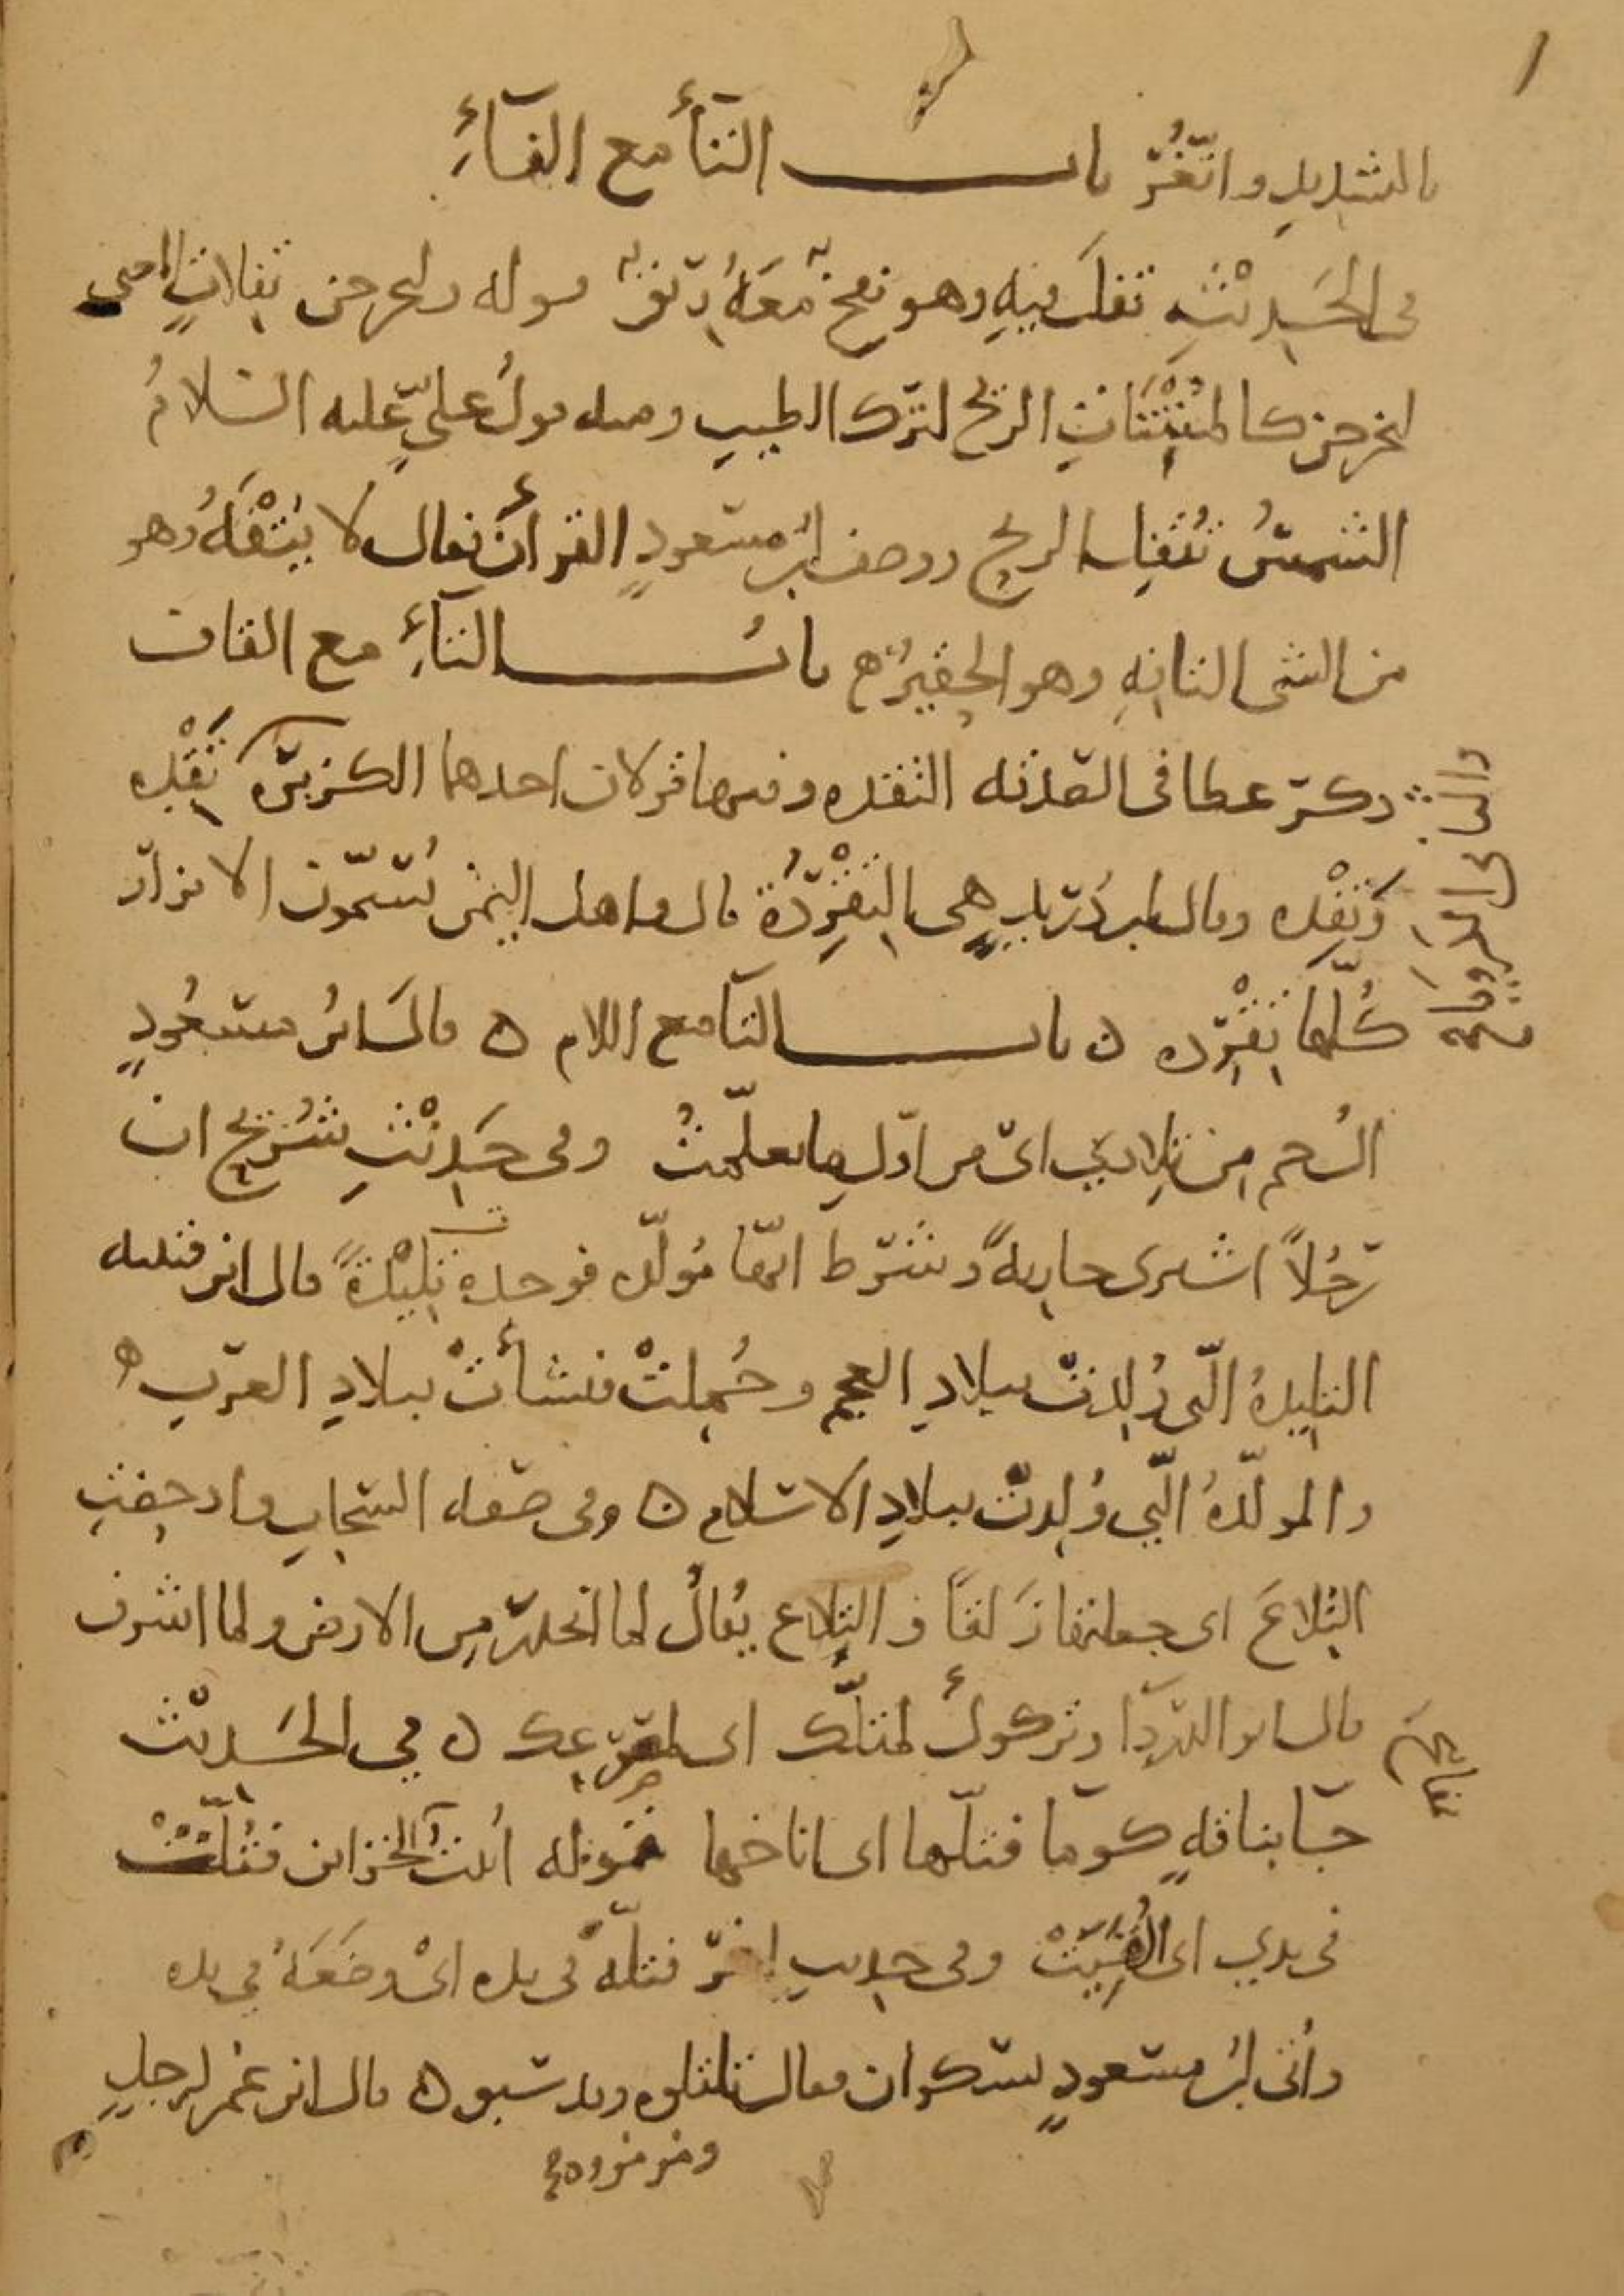 بالتشديد واتّغر باب التاء مع الفاء
في الحديث تفل فيه وهو نفخ معه ريق قوله وليخرجن تفلات اي
ليخرجن كالمنتنات الريح لترك الطيب ومنه قول علي عليه السلام
الشمس تتفل الريح ووصف ابن مسعود القرآن فقال لا يتفه وهو
من الشى التافه وهو الحقير باب التاء مع القاف
ذكر عطا في الصدقه التقده وفيها قولان احدهما الكزبره تقده
وتقده وقال ابن دريد هي التقردة قال واهل اليمن يسمون الابزار
كلها تقرده باب التا مع اللام قال ابن مسعود
ال حم من تلادي اي من اول ما تعلمت وفي حديث شريح ان
رجلاً اشترى جارية وشرط انها مولده فوجدها تليدة قال ابن قتيبه
التليدة التي ولدت ببلاد العجم وحملت فنشأت ببلاد العرب
والمولدة التي ولدت ببلاد الاسلام وفي صفه السحاب وادحضت
التلاع اي جعلتها زلقا والتلاع يقال لما انحدر من الارض ولما اشرف
قال ابو الدردا وتركوك لمتلك اي لمصرعك في الحديث
جا بناقة كوما فتلها اي اناخها قوله اتيت الخزاين فتلت
في يدي اي القيت وفي حديث اخر فتله في يده اي وضعه في يده
واتى ابن مسعود بسكران فقال تلتلوه قال ابن عمر لرجل
ومزمزوه